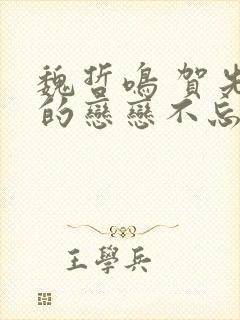 魏哲鳴 賀先
的戀戀不忘
王學兵